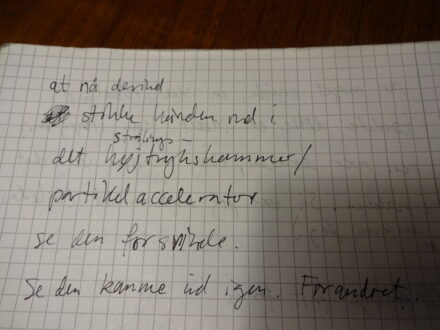 at nå derind
stikke hånden ned i
strålings-
det højtrykskammer/
partikelaccelerator
se den forsvinde.
Se den komme ud igen. Forandret.